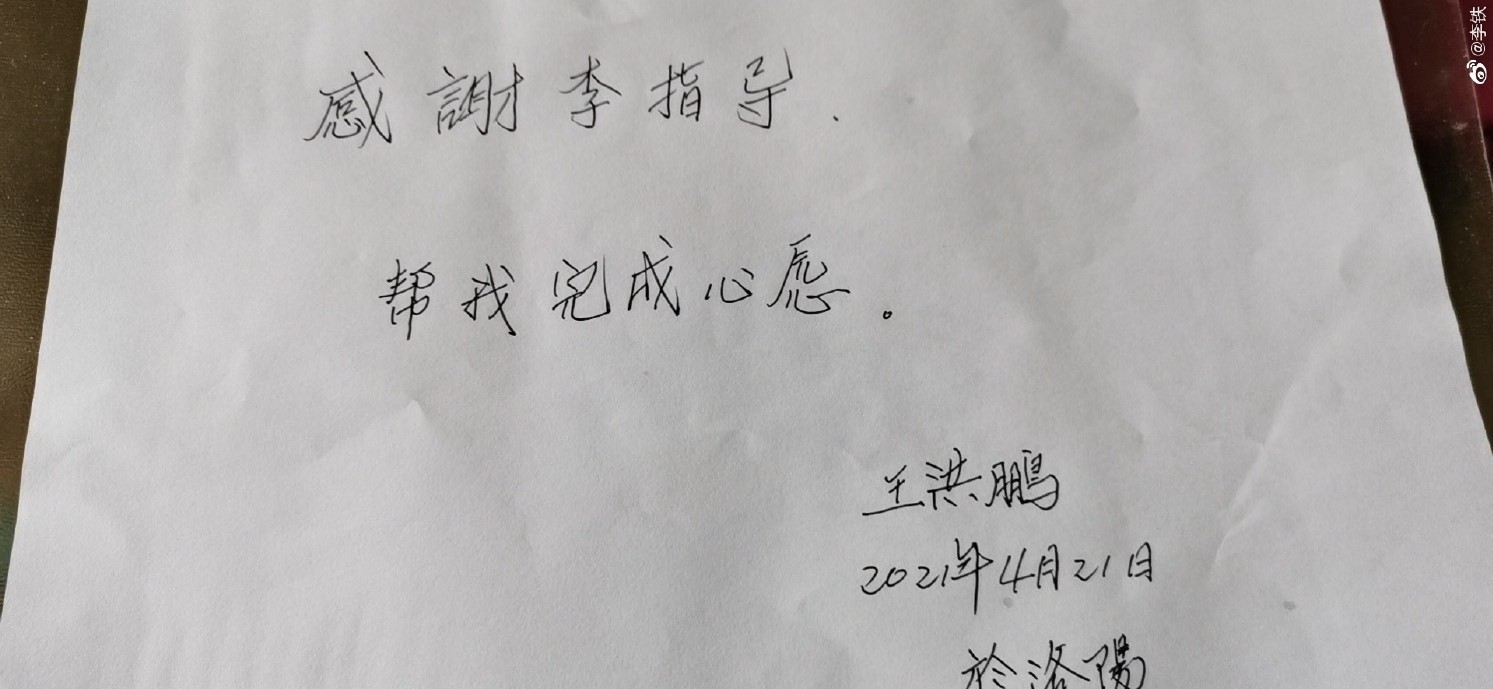 感謝李指导.
帮我完成心愿。
王洪鹏
2021年4月21日
於洛陽
@李铁